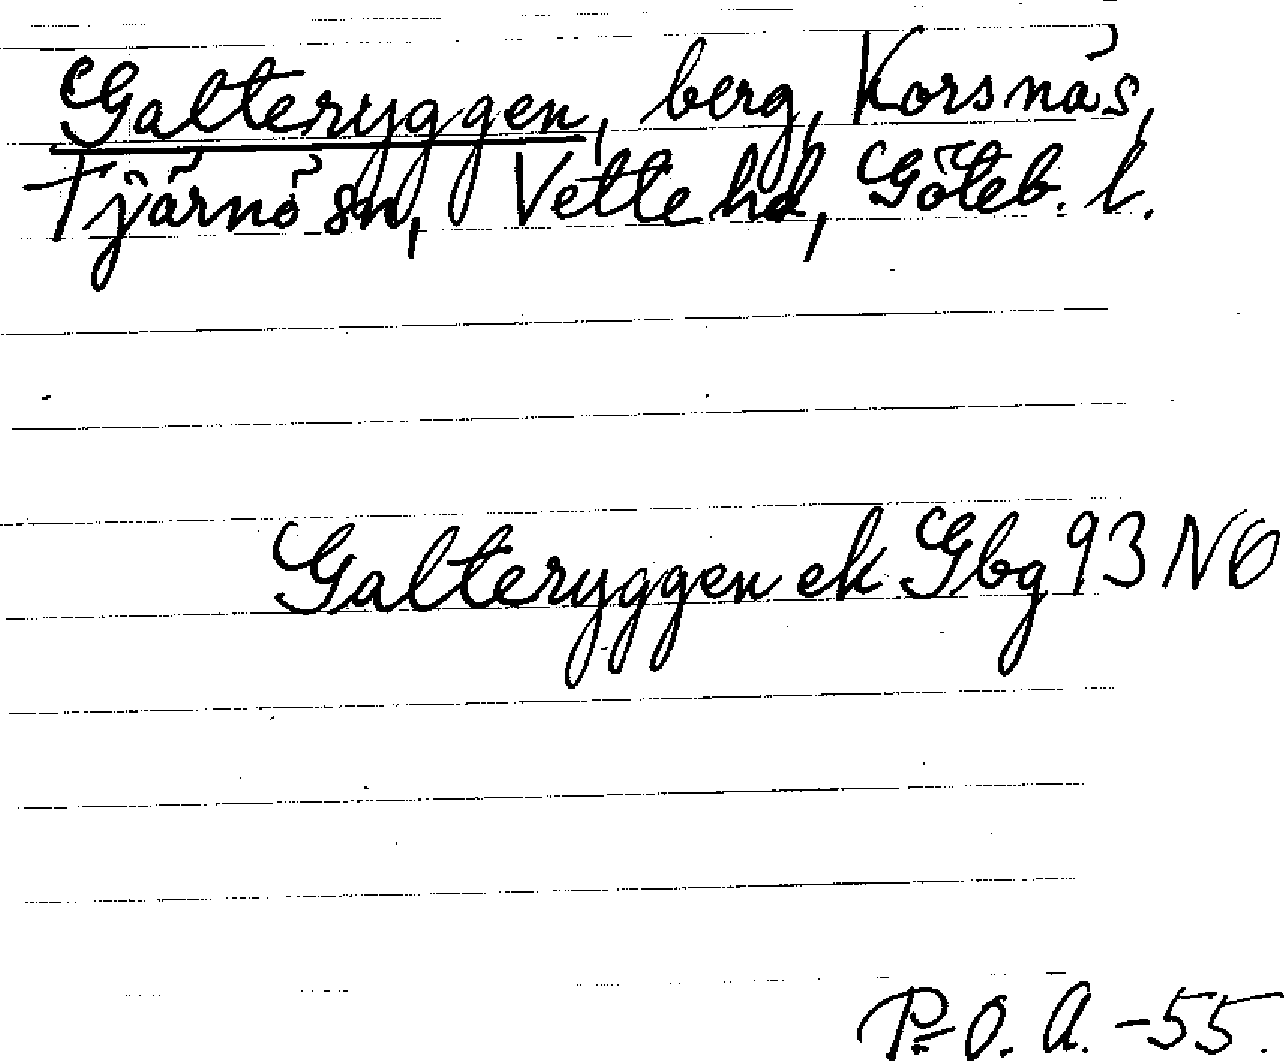 Galteryggen, berg, Korsnäs,
Tjärnö sn, Vette hd, Göteb. l.
Galteryggen ek Gbg 93 NO
P-O. A. -55.